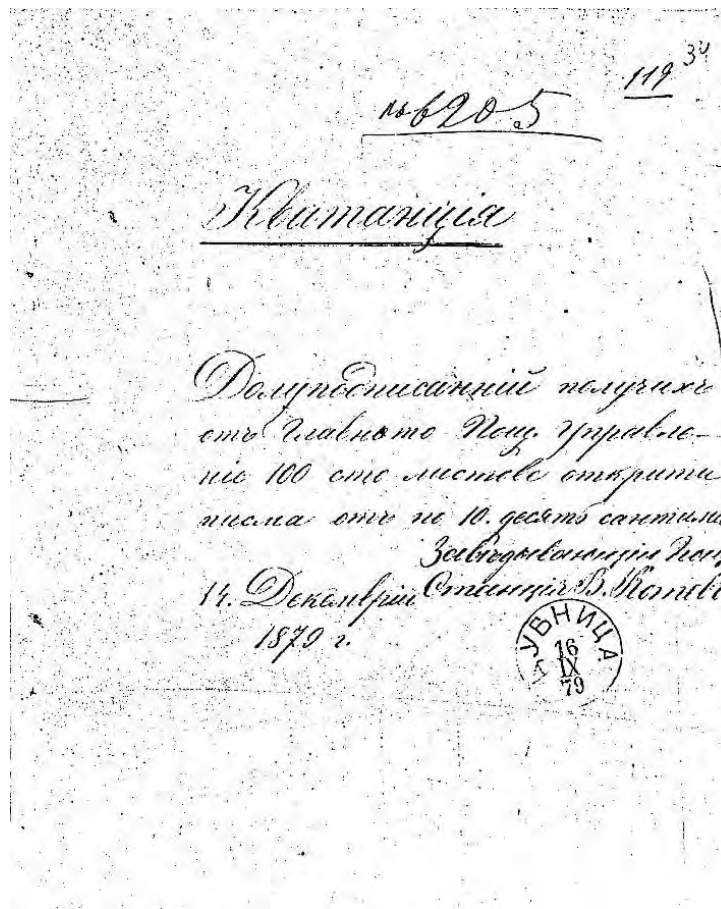 34
119
№ 6205
Квитанція
Долуподписанній получихъ
отъ Главното Пощ. Управле-
ніе 100 сто листове открити
писма отъ по 10. десять сантима
Завѣдывающій Пощ
14. Декемврій Станція В. Котевъ
1879 г.
ДУБНИЦА
16
IX
79